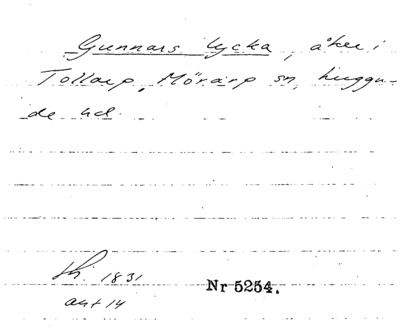 Gunnars lycka, åker i
Tollarp, Mörarp sn, Luggu-
de hd.
Sk. 1831
akt 14
Nr 5254.